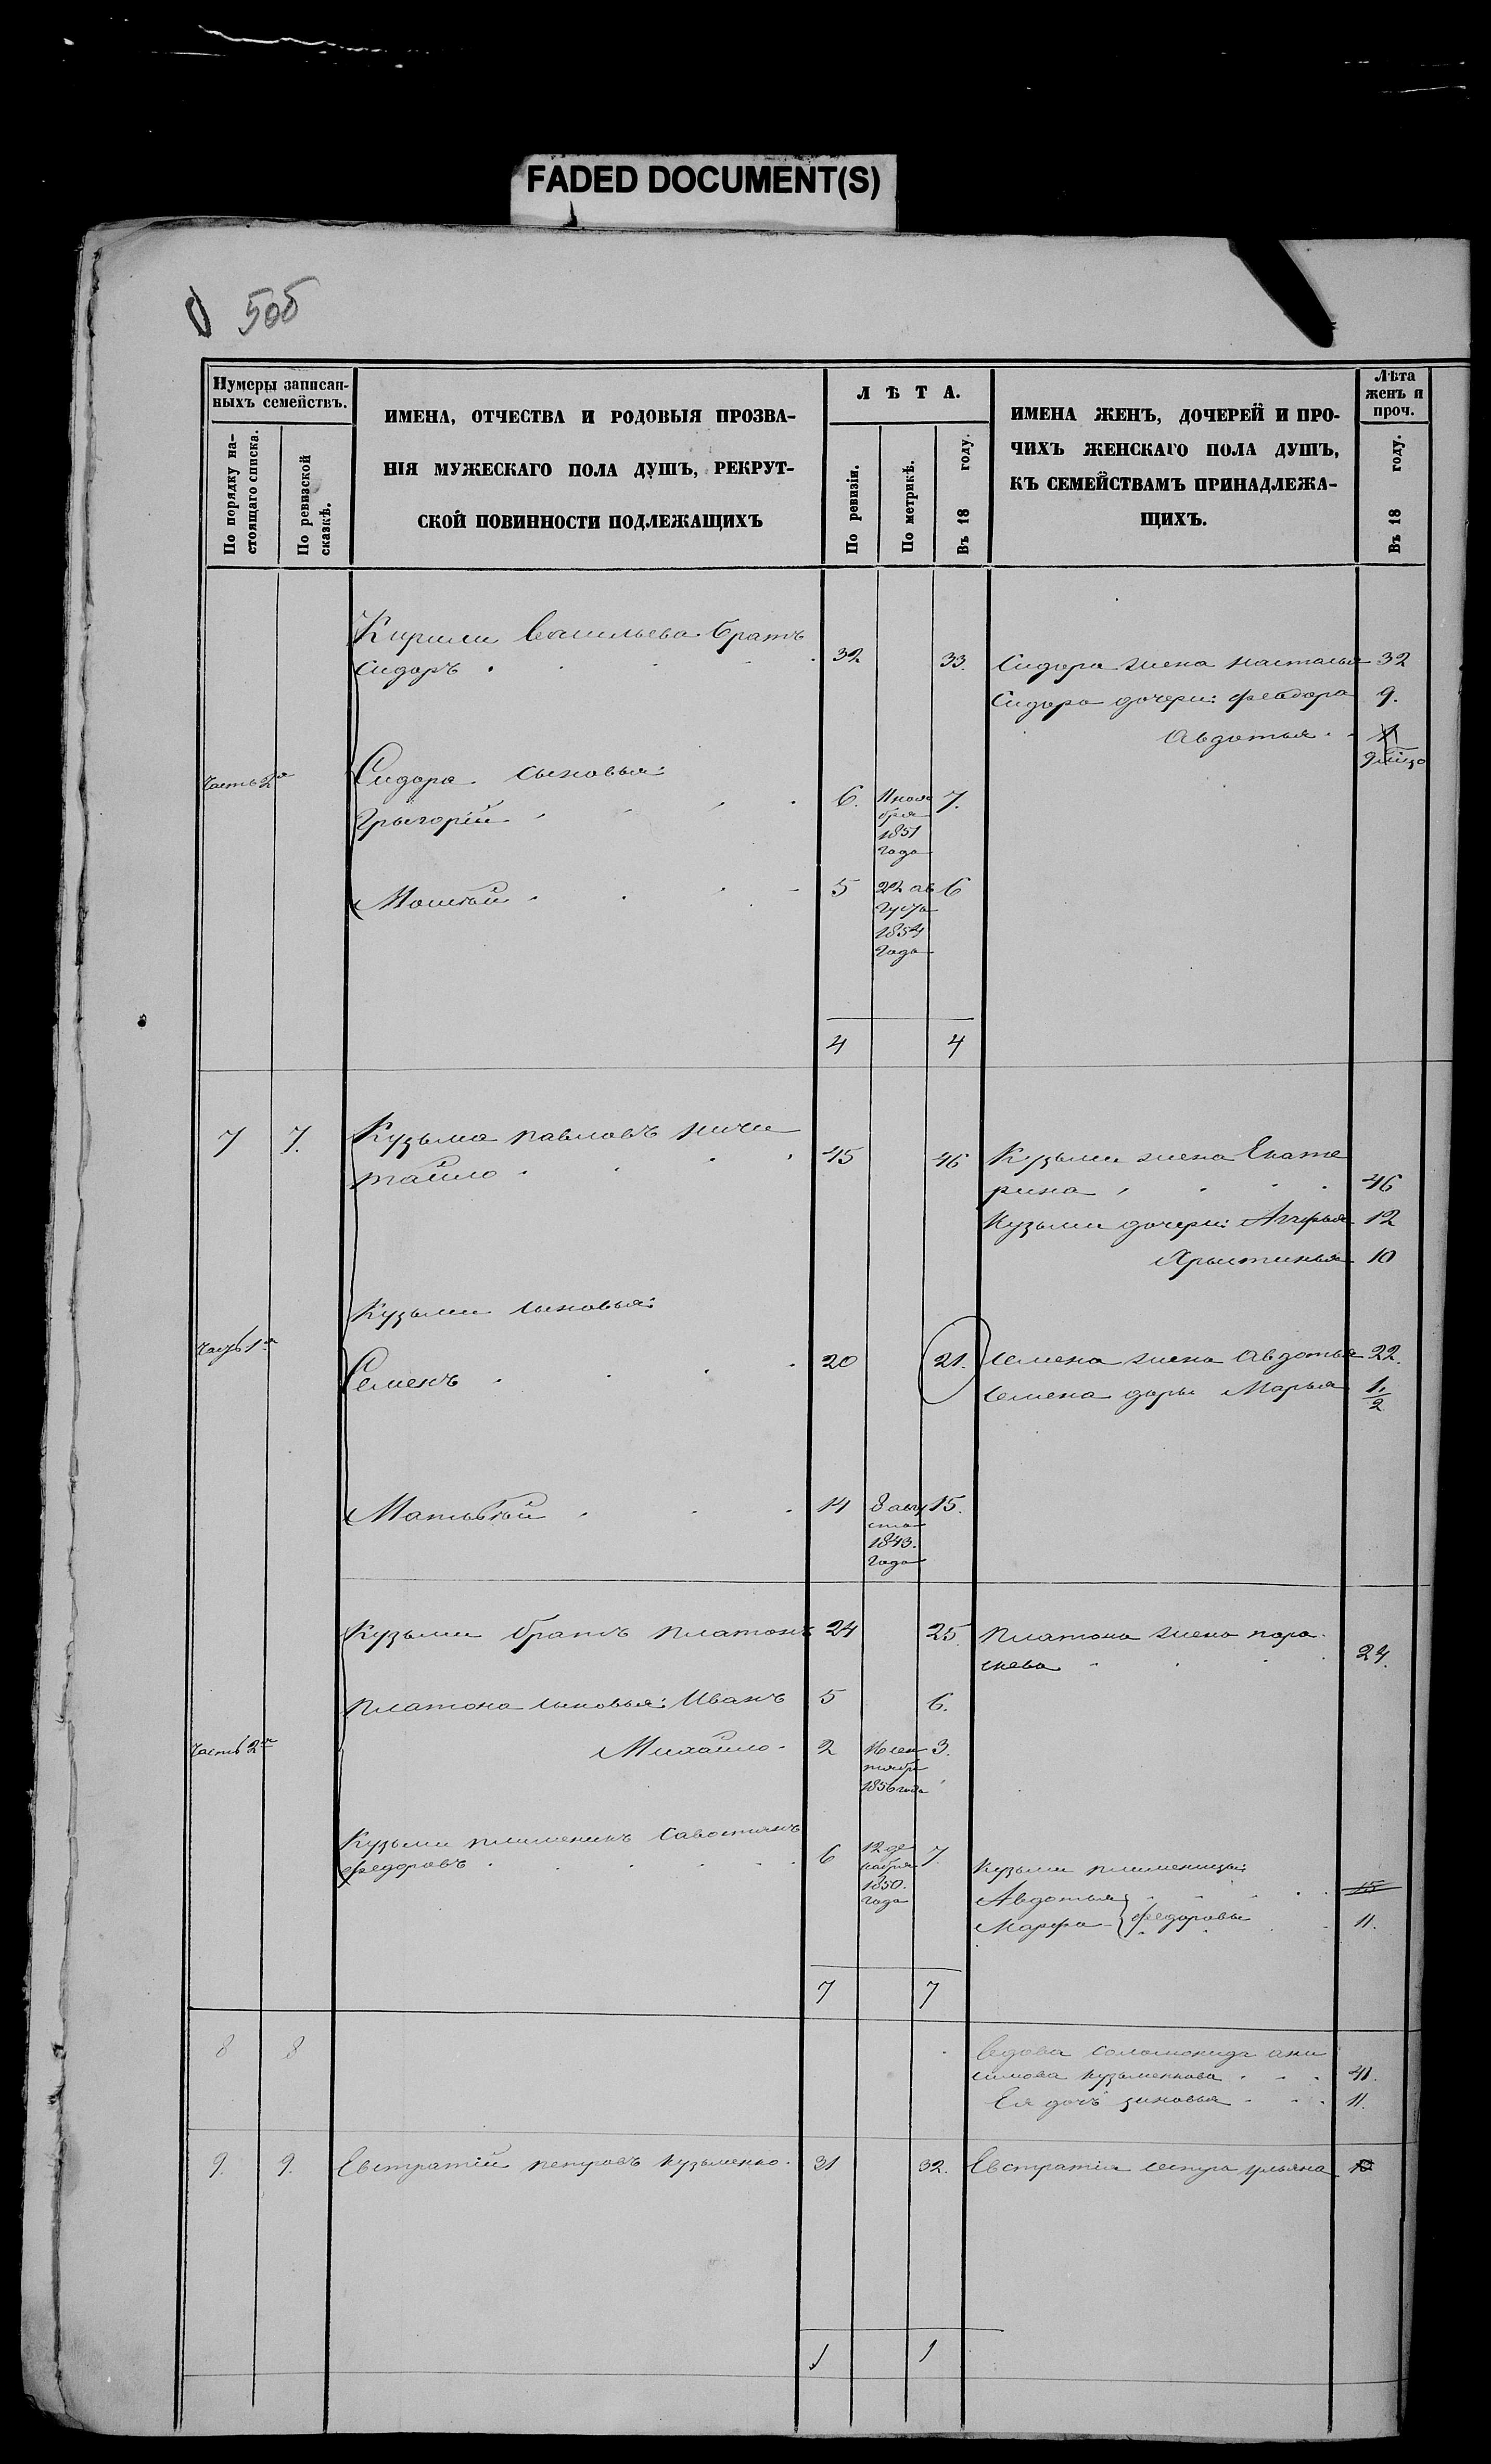 FADED DOCUMENT(S)
50б
Нумеры записан-
ныхъ семействъ.
По порядку на-
стоящаго списка.
По ревизской
сказкѣ.
ИМЕНА, ОТЧЕСТВА И РОДОВЫЯ ПРОЗВА-
НІЯ МУЖЕСКАГО ПОЛА ДУШЪ, РЕКРУТ-
СКОЙ ПОВИННОСТИ ПОДЛЕЖАЩИХЪ
ЛѢТА.
По ревизіи.
По метрикѣ.
Въ 18 году.
ИМЕНА ЖЕНЪ, ДОЧЕРЕЙ И ПРО-
ЧИХЪ ЖЕНСКАГО ПОЛА ДУШЪ,
КЪ СЕМЕЙСТВАМЪ ПРИНАДЛЕЖА-
ЩИХЪ.
Лѣта
женъ и
проч.
Въ 18 году.
Кирили Васильева братъ
Сидоръ 32 33. Сидора жена Наталья 32
Сидора дочери: Феодора 9.
Авдотья
Часть 2я Сидора сыновья:
Григорій 6. 7.
1851
года
5 22 ав 6
густа
1854
года
4 4
7 7. Кузьма Павловъ Ничи
тайло 45 46 Кузьми жена Екате
рина 46
Кузьми дочери: 12
Христинья 10
Кузьми сыновья:
Часть 1я
Семенъ 20 21. Семена жена Авдотья 22.
Семена дочь Марья 1/2
Матвѣй 14 8 авгу 15.
ста
1843.
года
Кузьми братъ Платонъ 24 25. Платона жена Пара
скева 24.
Платона сыновья: Иванъ 5 6.
Часть 2я Михайло 2 16 сен 3.
тября
1856 года
Кузьми племеникъ Савостьянъ
Федоровъ 6 12 де 7.
кабря
1850.
года
Кузьми племеницы:
Авдотья 15
Марфа Федоровы 11.
7 7
8 8 Вдова Соломонида Ани
симова Кузьменкова 41.
Ея дочь Зиновья 11.
9. 9. Евстратій Петровъ Кузьменко. 31 32. Евстратія сестра Ульяна
1 1